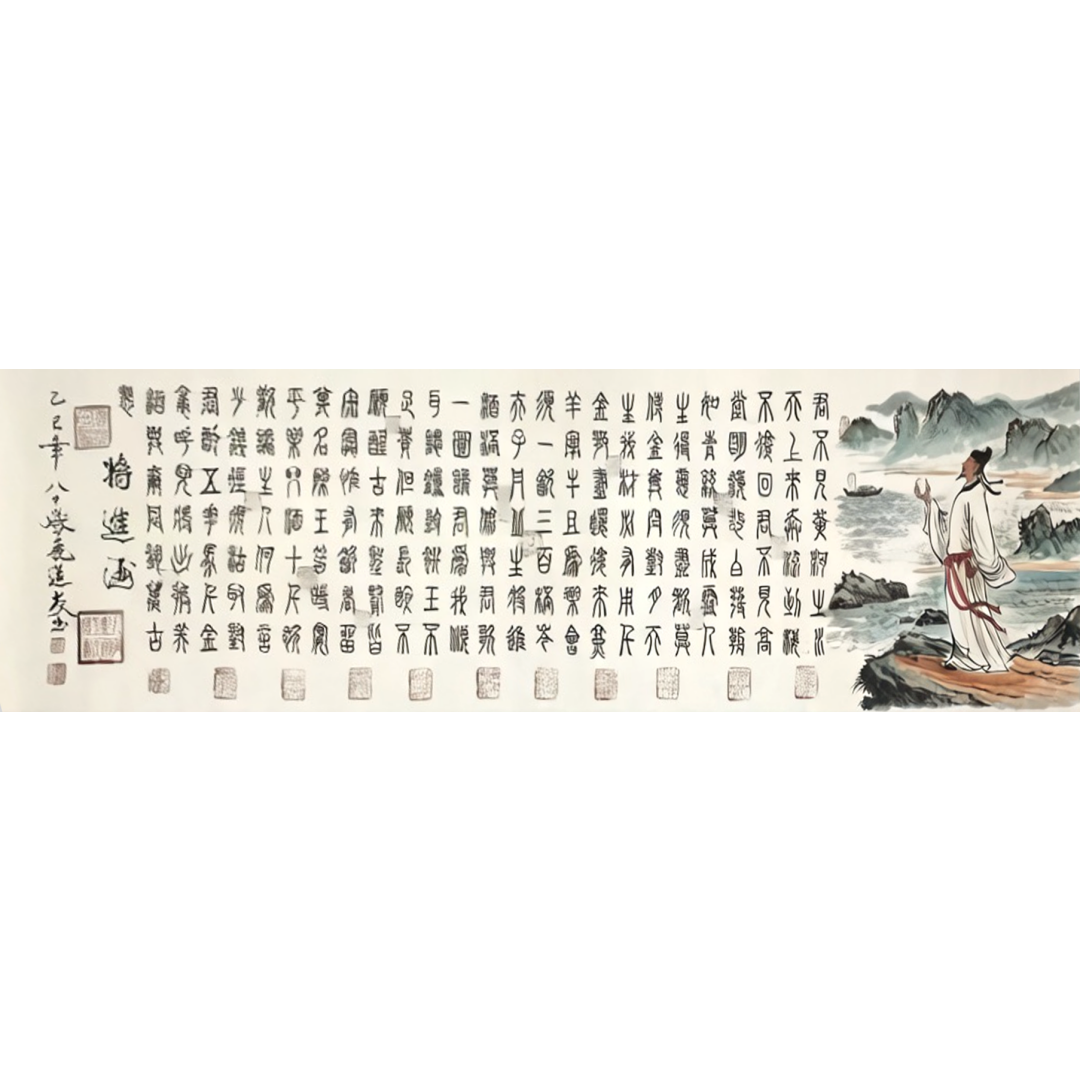 君不見黃河之水
天上來奔流到海
不復回君不見高
堂明鏡悲白髮朝
如青絲暮成雪人
生得意須盡歡莫
使金樽空對月天
生我材必有用千
金散盡還復來烹
羊宰牛且為樂會
須一飲三百杯岑
夫子丹丘生將進
酒杯莫停與君歌
一曲請君為我傾
耳聽鐘鼓饌玉不
足貴但願長醉不
願醒古來聖賢皆
寂寞惟有飲者留
其名陳王昔時宴
平樂斗酒十千恣
歡謔主人何為言
少錢徑須沽取對
君酌五花馬千金
裘呼兒將出換美
酒與爾同銷萬古
愁
將進酒
乙巳年八十歲